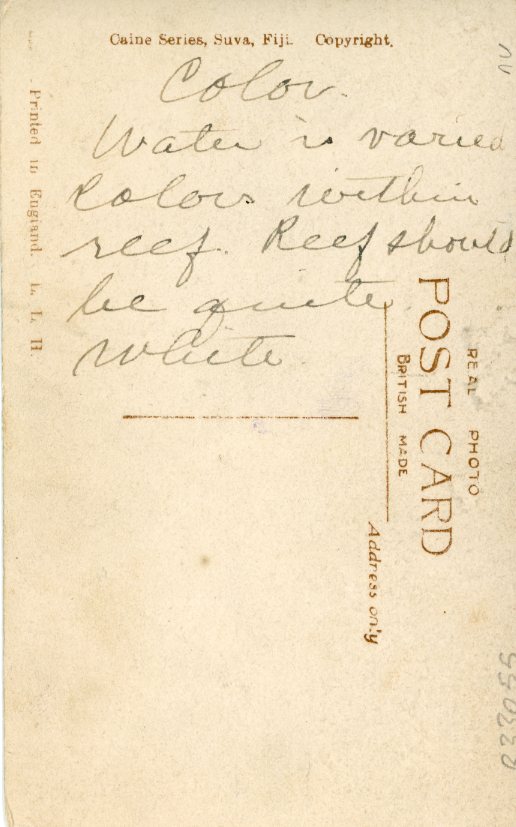 Caine Series, Suva, Fiji. Copyright.
Color.
Water is varied
colors within
reef. Reef should
be quite
white
Printed in England.
POST CARD
REAL PHOTO
BRITISH MADE
Address only